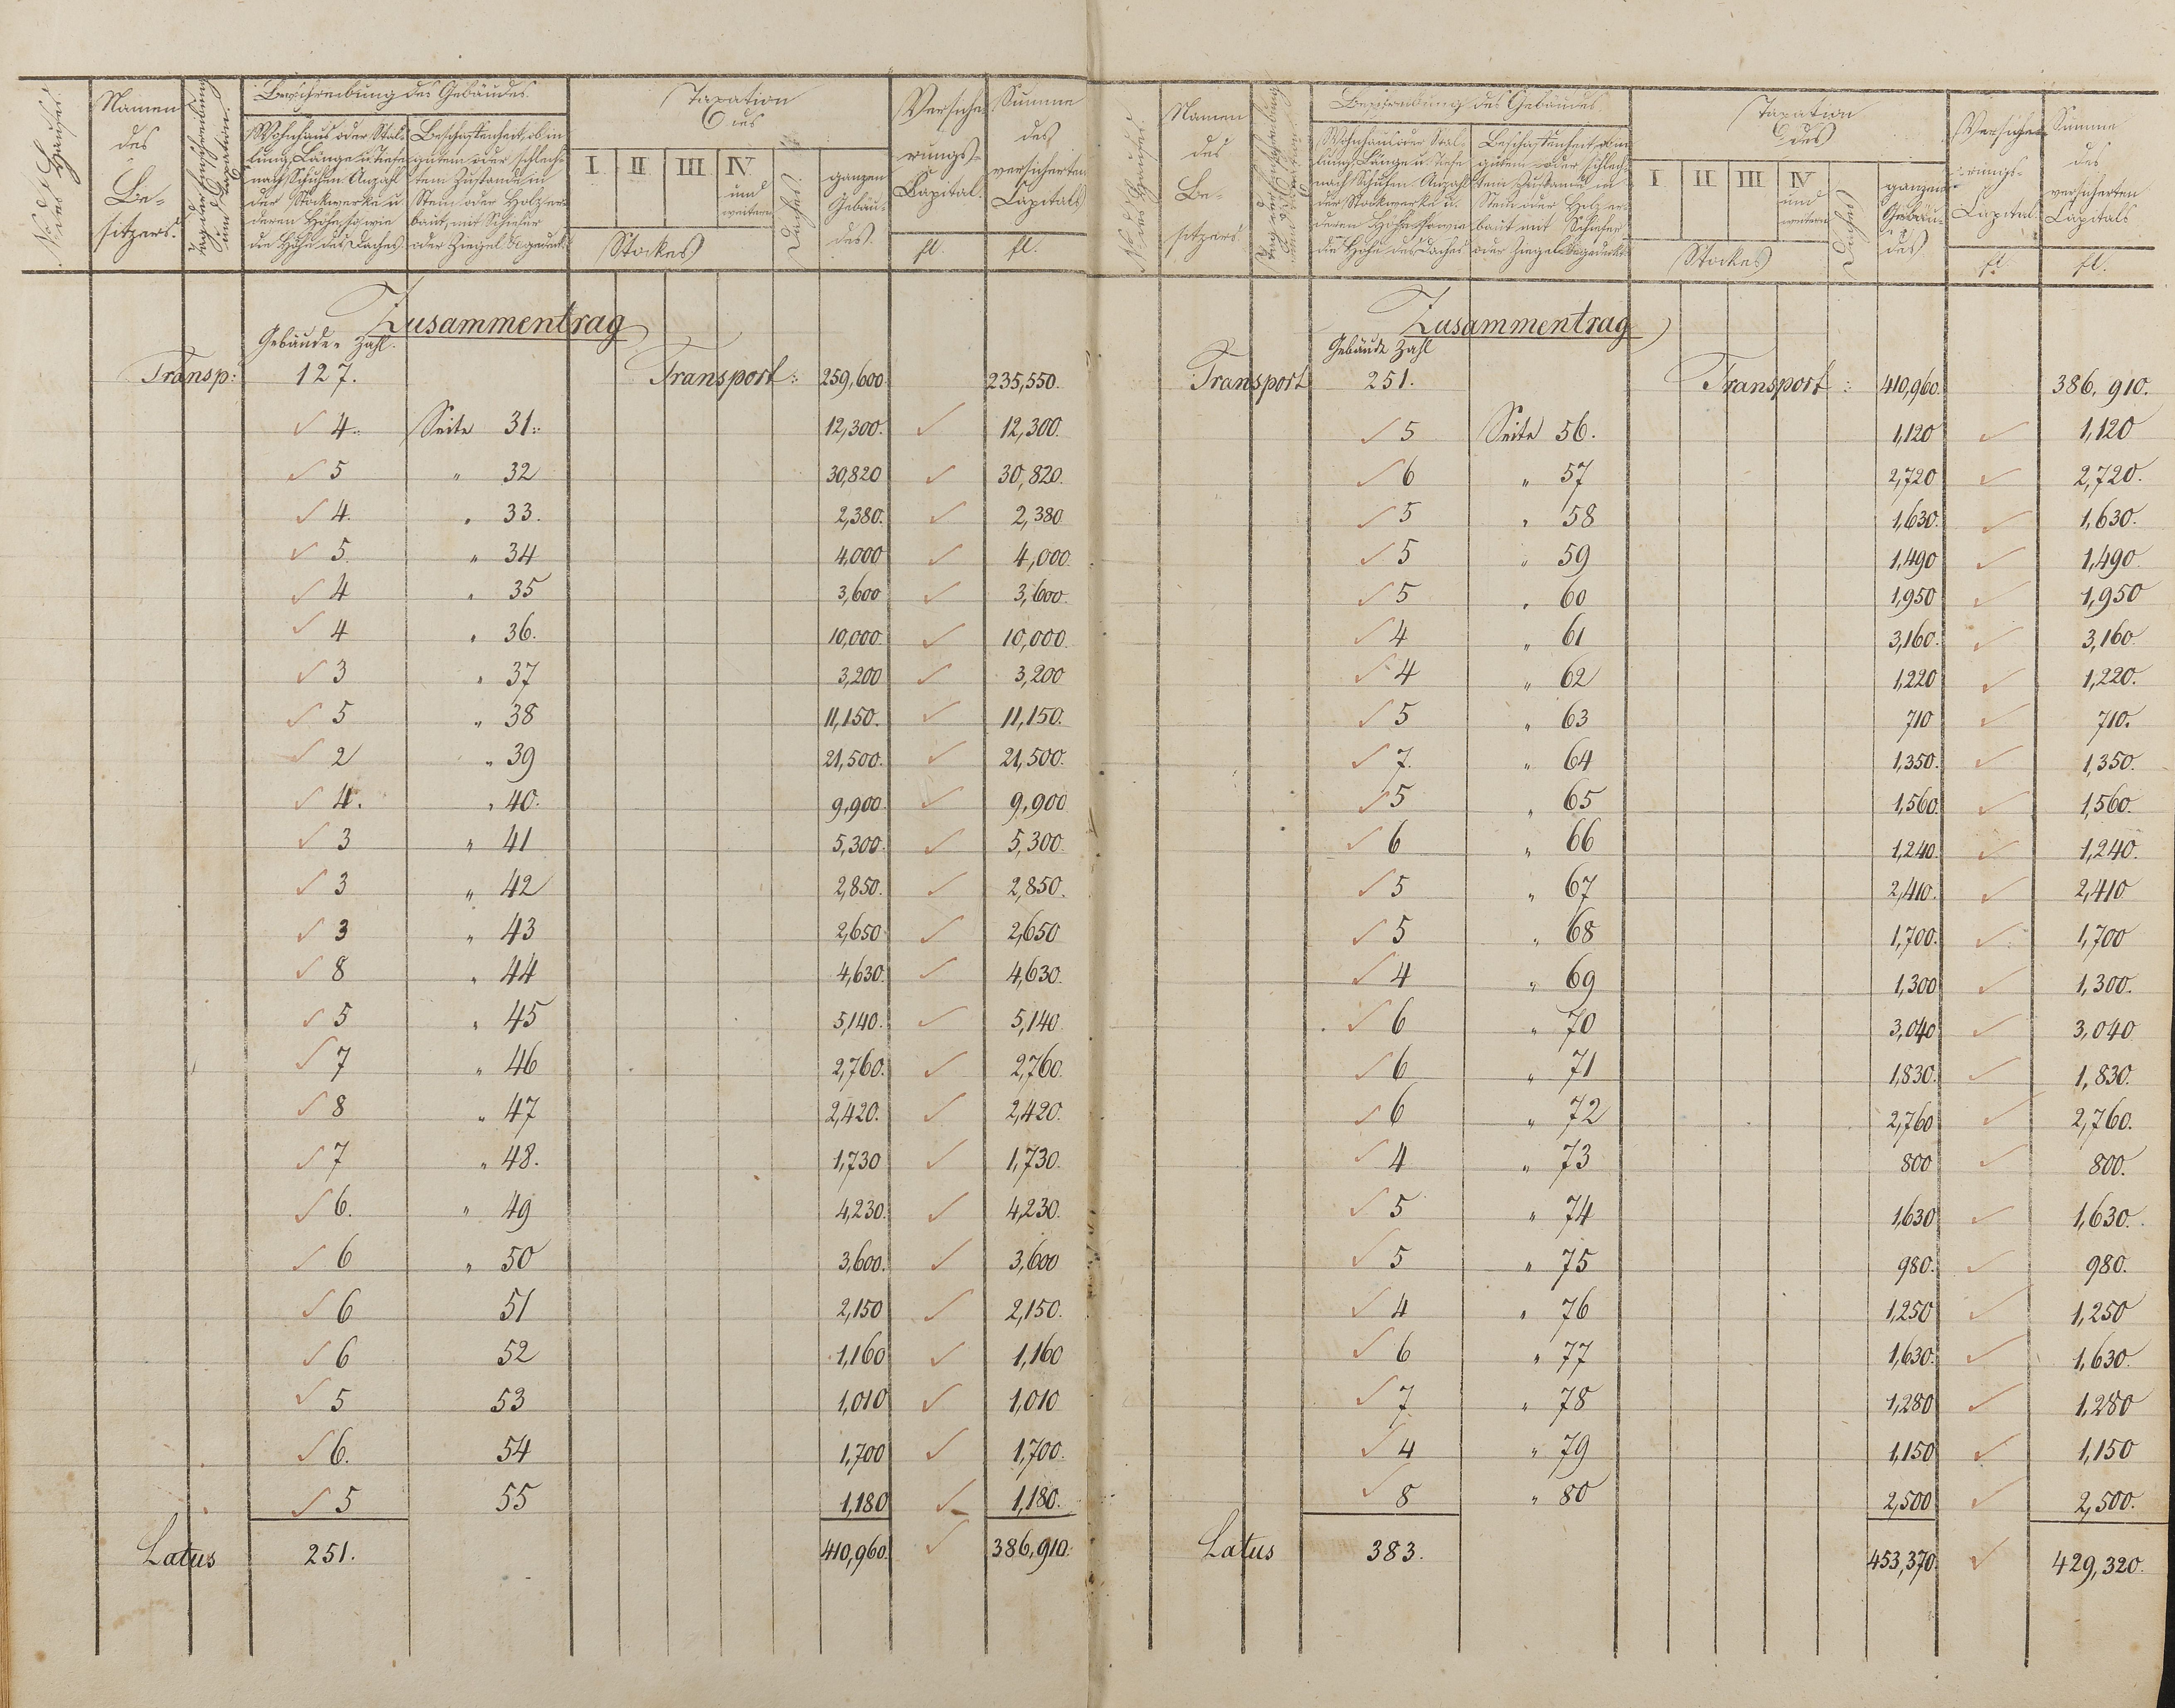 No des Hauses.
Namen
des
Be-
sitzers.
Tag der Einschreibung
und Taxation.
Beschreibung des Gebäudes.
Wohnhaus oder Stal-
lung, Länge u. Tiefe
nach Schuhen Anzahl
der Stockwerke u.
deren Höhe, sowie
die Höhe des Daches
Beschaffenheit, ob in
gutem oder schlech-
tem Zustande, in
Stein oder Holz er-
baut, mit Schiefer
oder Ziegel gedeckt.
Taxation
des
I II III IV
und
weitern
Stockes
Daches.
ganzen
Gebäu-
des.
Versiche-
rungs-
Kapital.
fl.
Summe
des
versicherten
Capitals
fl.
Zusammentrag
Gebäude-Zahl.
Transp: 127. Transport: 259,600. 235,550.
4. Seite 31. 12,300. 12,300.
5 " 32 30,820 30,820.
4. " 33. 2,380. 2,380
5. " 34 4,000 4,000.
4 " 35 3,600 3,600.
4 " 36. 10,000 10,000.
3 " 37 3,200 3,200
5 " 38 11,150. 11,150.
2 " 39 21,500. 21,500.
4. " 40. 9,900. 9,900
3 " 41 5,300. 5,300.
3 " 42 2,850. 2,850.
3 " 43 2,650 2,650
8 " 44 4,630. 4,630.
5 " 45 5,140. 5,140
7 " 46 2,760. 2,760.
8 " 47 2,420. 2,420.
7 " 48. 1,730 1,730.
6. " 49 4,230. 4,230.
6 " 50 3,600. 3,600
6 51 2,150 2,150.
6 52 1,160 1,160
5 53 1,010 1,010
6. 54 1,700 1,700.
5 55 1,180 1,180.
Latus 251. 410,960. 386,910.
No des Hauses.
Namen
des
Be-
sitzers
Tag der Einschreibung
und Taxation
Beschreibung des Gebäudes
Wohnhaus oder Stal-
lung, Länge u. Tiefe
nach Schuhen Anzahl
der Stockwerke u.
deren Höhe sowie
die Höhe des Daches
Beschaffenheit, ob in
gutem oder schlech-
tem Zustande in
Stein oder Holz er-
baut mit Schiefer
oder Ziegel gedeckt.
Taxation
des
I II III IV
und
weitern
Stockes
Daches
ganzen
Gebäu-
des
Versiche-
rungs-
Capital.
fl.
Summe
des
versicherten
Capitals
fl.
Zusammentrag
Gebäude Zahl
Transport 251. Transport: 410,960. 386,910.
5 Seite 56. 1,120 1,120
6 " 57 2,720 2,720.
5 " 58 1,630. 1,630.
5 " 59 1,490 1,490
5 " 60 1,950 1,950
4 " 61 3,160. 3,160
4 " 62 1,220 1,220.
5 " 63 710 710.
7. " 64 1,350. 1,350.
5 " 65 1,560. 1,560.
6 " 66 1,240. 1,240.
5 " 67 2,410. 2,410
5 " 68 1,700. 1,700
4 " 69 1,300 1,300.
6 " 70 3,040 3,040
6 " 71 1,830. 1,830.
6 " 72 2,760 2,760.
4 " 73 800 800.
5 " 74 1,630 1,630.
5 " 75 980. 980.
4 " 76 1,250 1,250
6 " 77 1,630. 1,630.
7 " 78 1,280 1,280
4 " 79 1,150 1,150
8 " 80 2,500 2,500.
Latus 383. 453,370. 429,320.